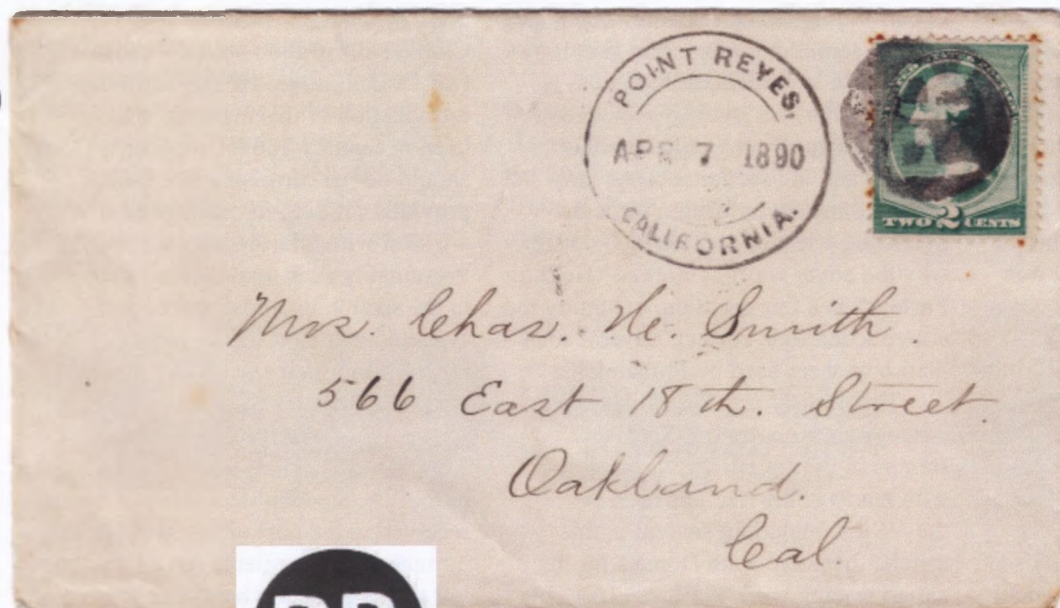 POINT REYES,
APR 7 1890
CALIFORNIA.
TWO 2 CENTS
Mrs. Chas. H. Smith.
566 East 18th. Street.
Oakland.
Cal.